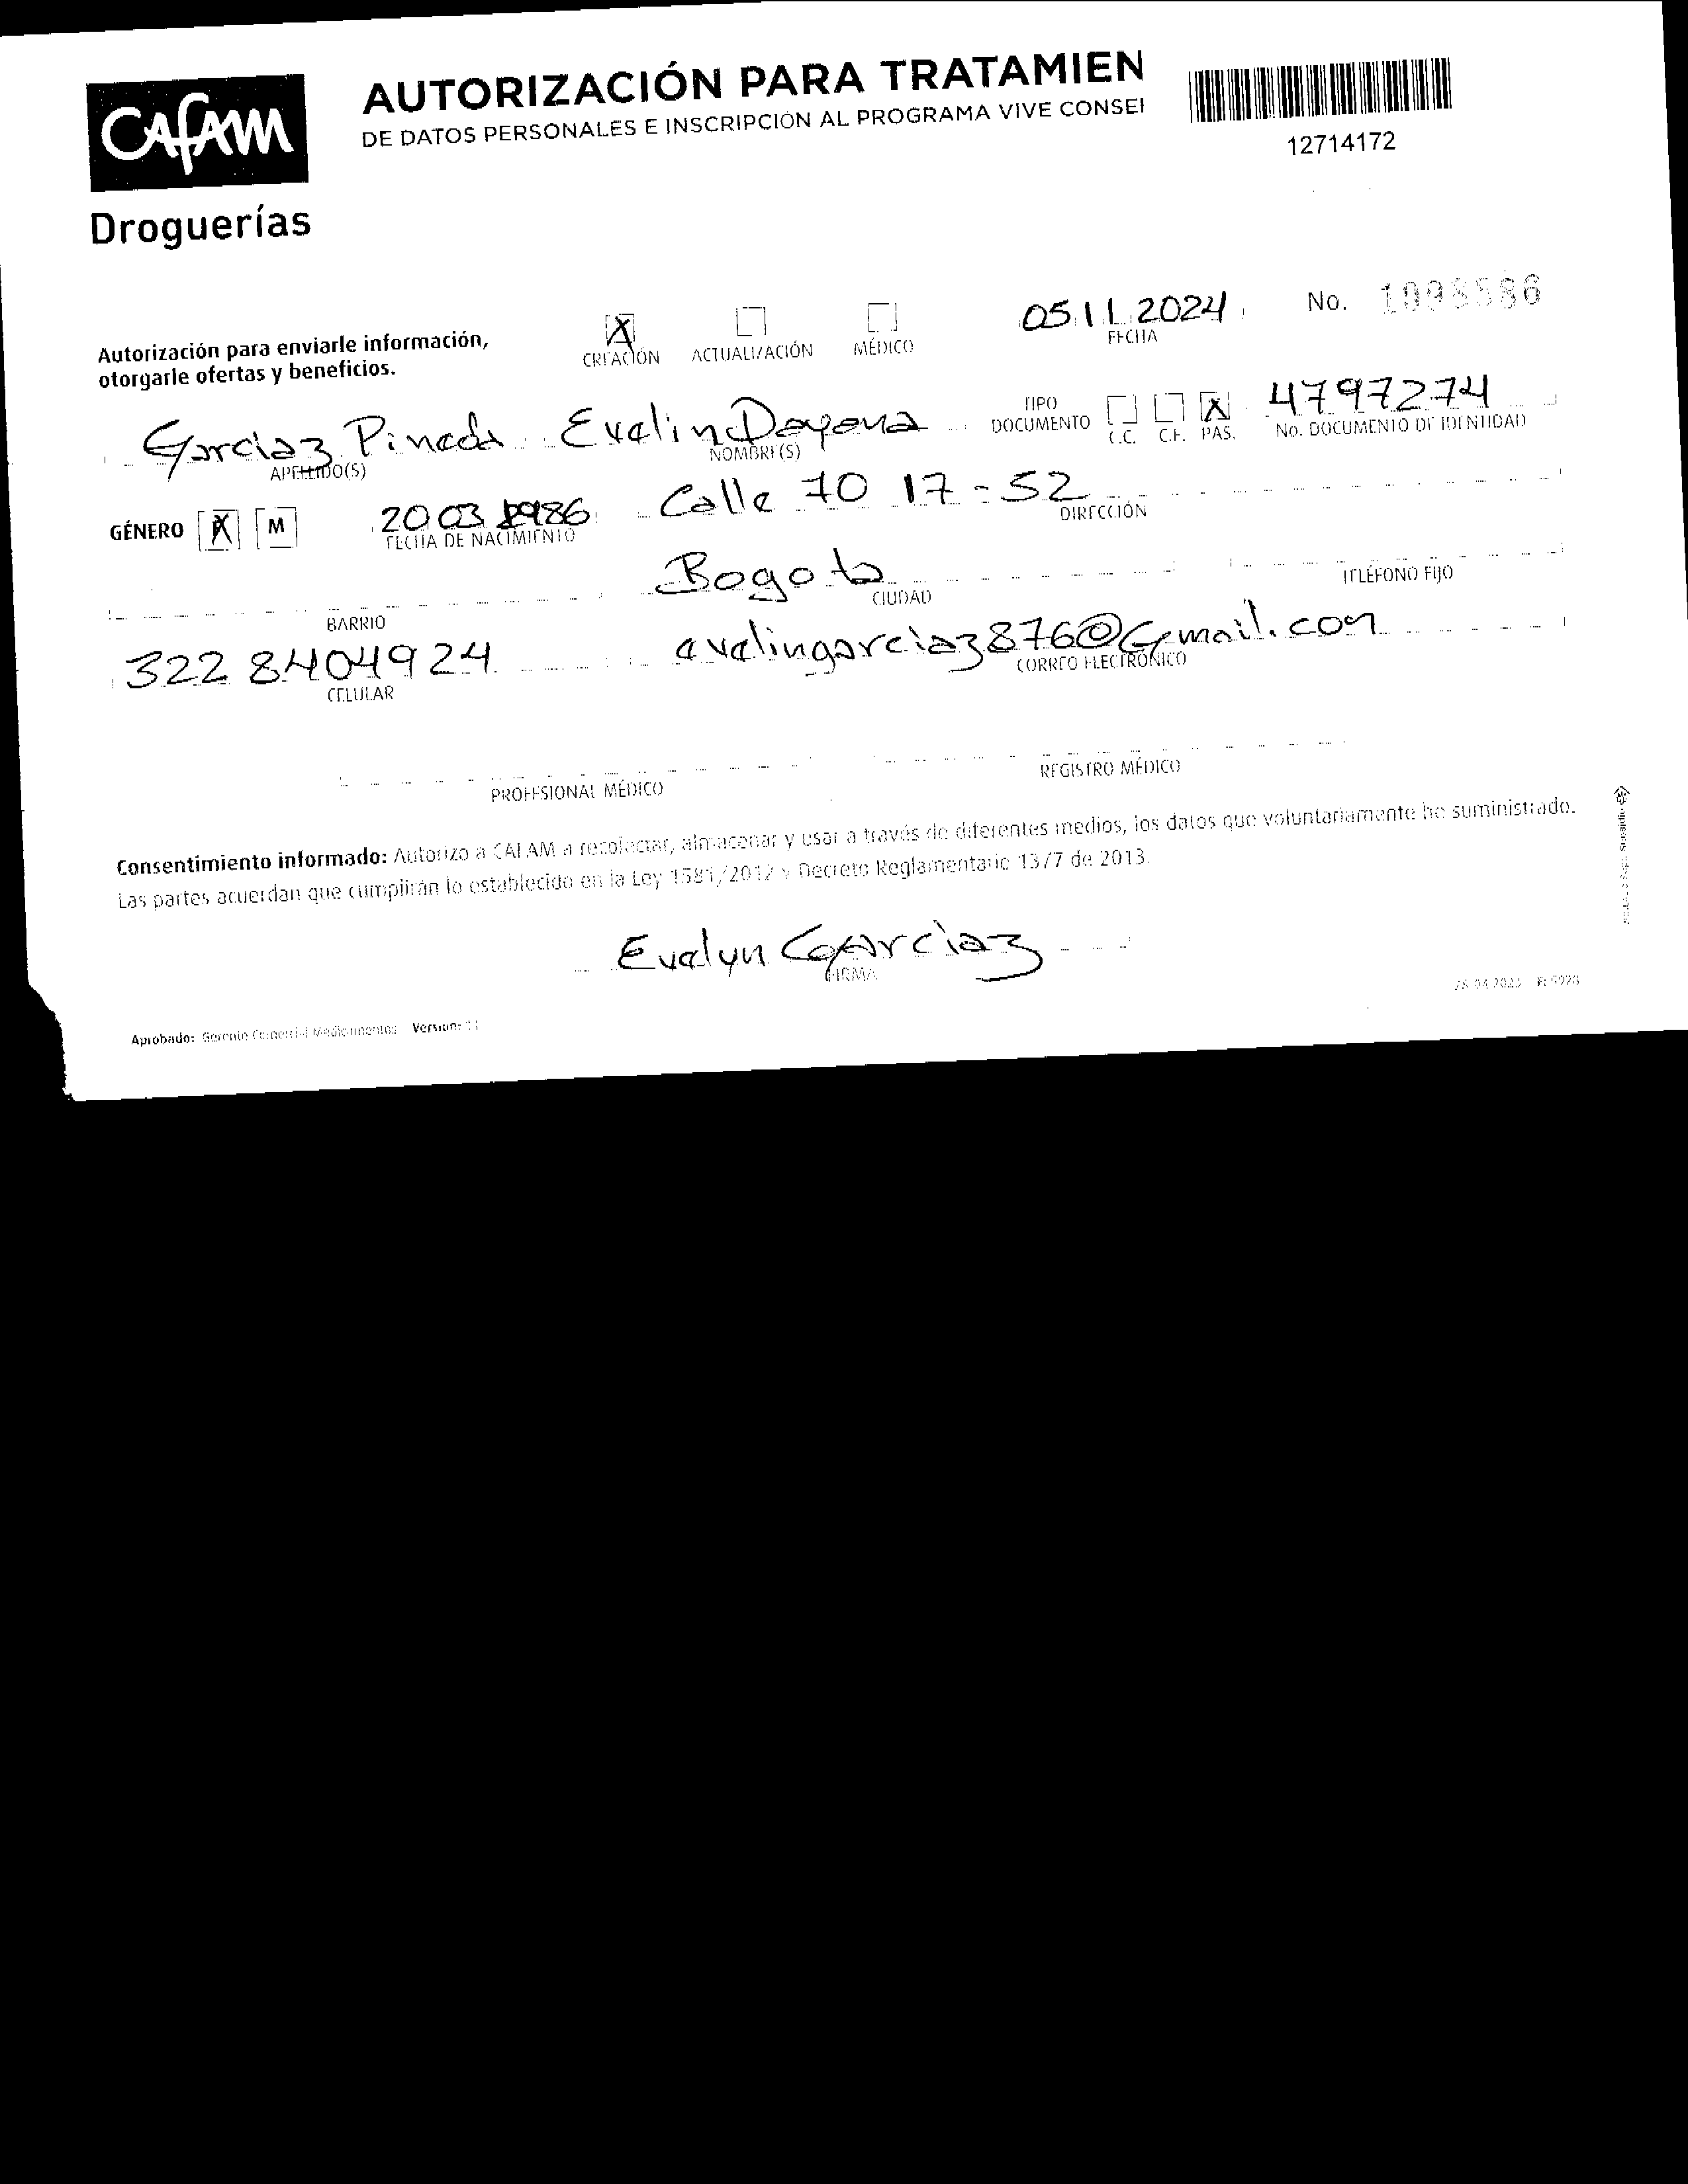 CAFAM
Droguerías
AUTORIZACIÓN PARA TRATAMIEN
DE DATOS PERSONALES E INSCRIPCIÓN AL PROGRAMA VIVE CONSEI
12714172
Autorización para enviarle información,
otorgarle ofertas y beneficios.
X CREACIÓN ACTUALIZACIÓN MÉDICO
05 11 2024
FECHA
No. 1098586
Garciaz Pineda Evelin Dayana
APELLIDO(S) NOMBRE(S)
TIPO DOCUMENTO C.C. C.E. X PAS.
4797274
No. DOCUMENTO DE IDENTIDAD
GÉNERO X M
20 03 1986
FECHA DE NACIMIENTO
Calle 70 17-52
DIRECCIÓN
BARRIO
Bogota
CIUDAD
TELÉFONO FIJO
322 8404924
CELULAR
evelingarciaz876@Gmail.com
CORREO ELECTRÓNICO
PROFESIONAL MÉDICO
REGISTRO MÉDICO
Consentimiento informado: Autorizo a CAFAM a recolectar, almacenar y usar a través de diferentes medios, los datos que voluntariamente he suministrado.
Las partes acuerdan que cumplirán lo establecido en la Ley 1581/2012 y Decreto Reglamentario 1377 de 2013.
Evelyn Garciaz
FIRMA
Aprobado: Gerente Comercial Medicamentos Version: 11